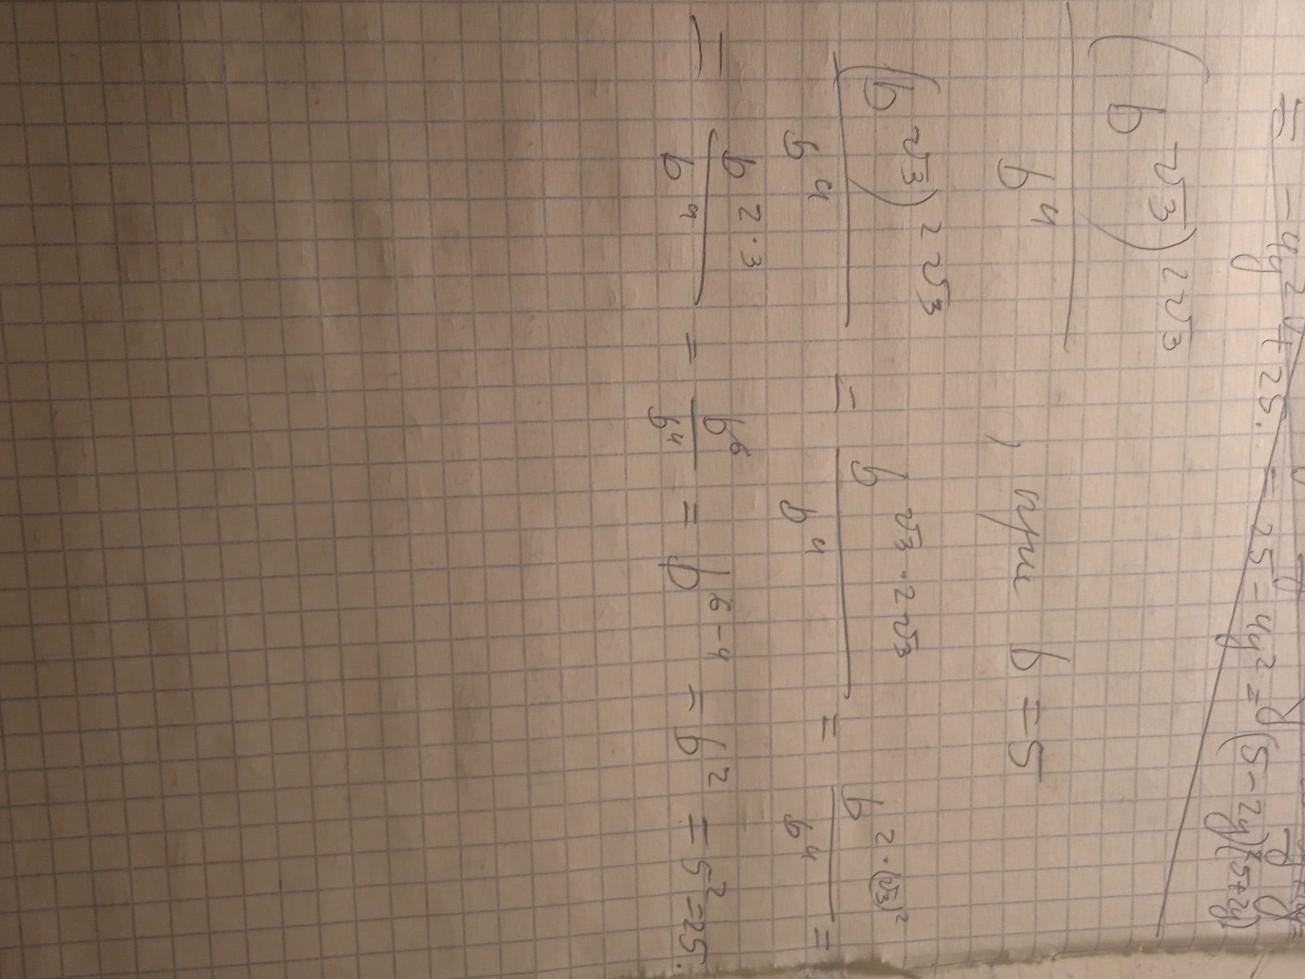 = -4y² + 25. = 25 - 4y² = (5-2y)(5+2y)
(b^√3)^2√3 / b⁴ , при b = 5
(b^√3)^2√3 / b⁴ = b^√3·2√3 / b⁴ = b^2·(√3)² / b⁴ =
= b^2·3 / b⁴ = b⁶ / b⁴ = b^6-4 = b² = 5² = 25.